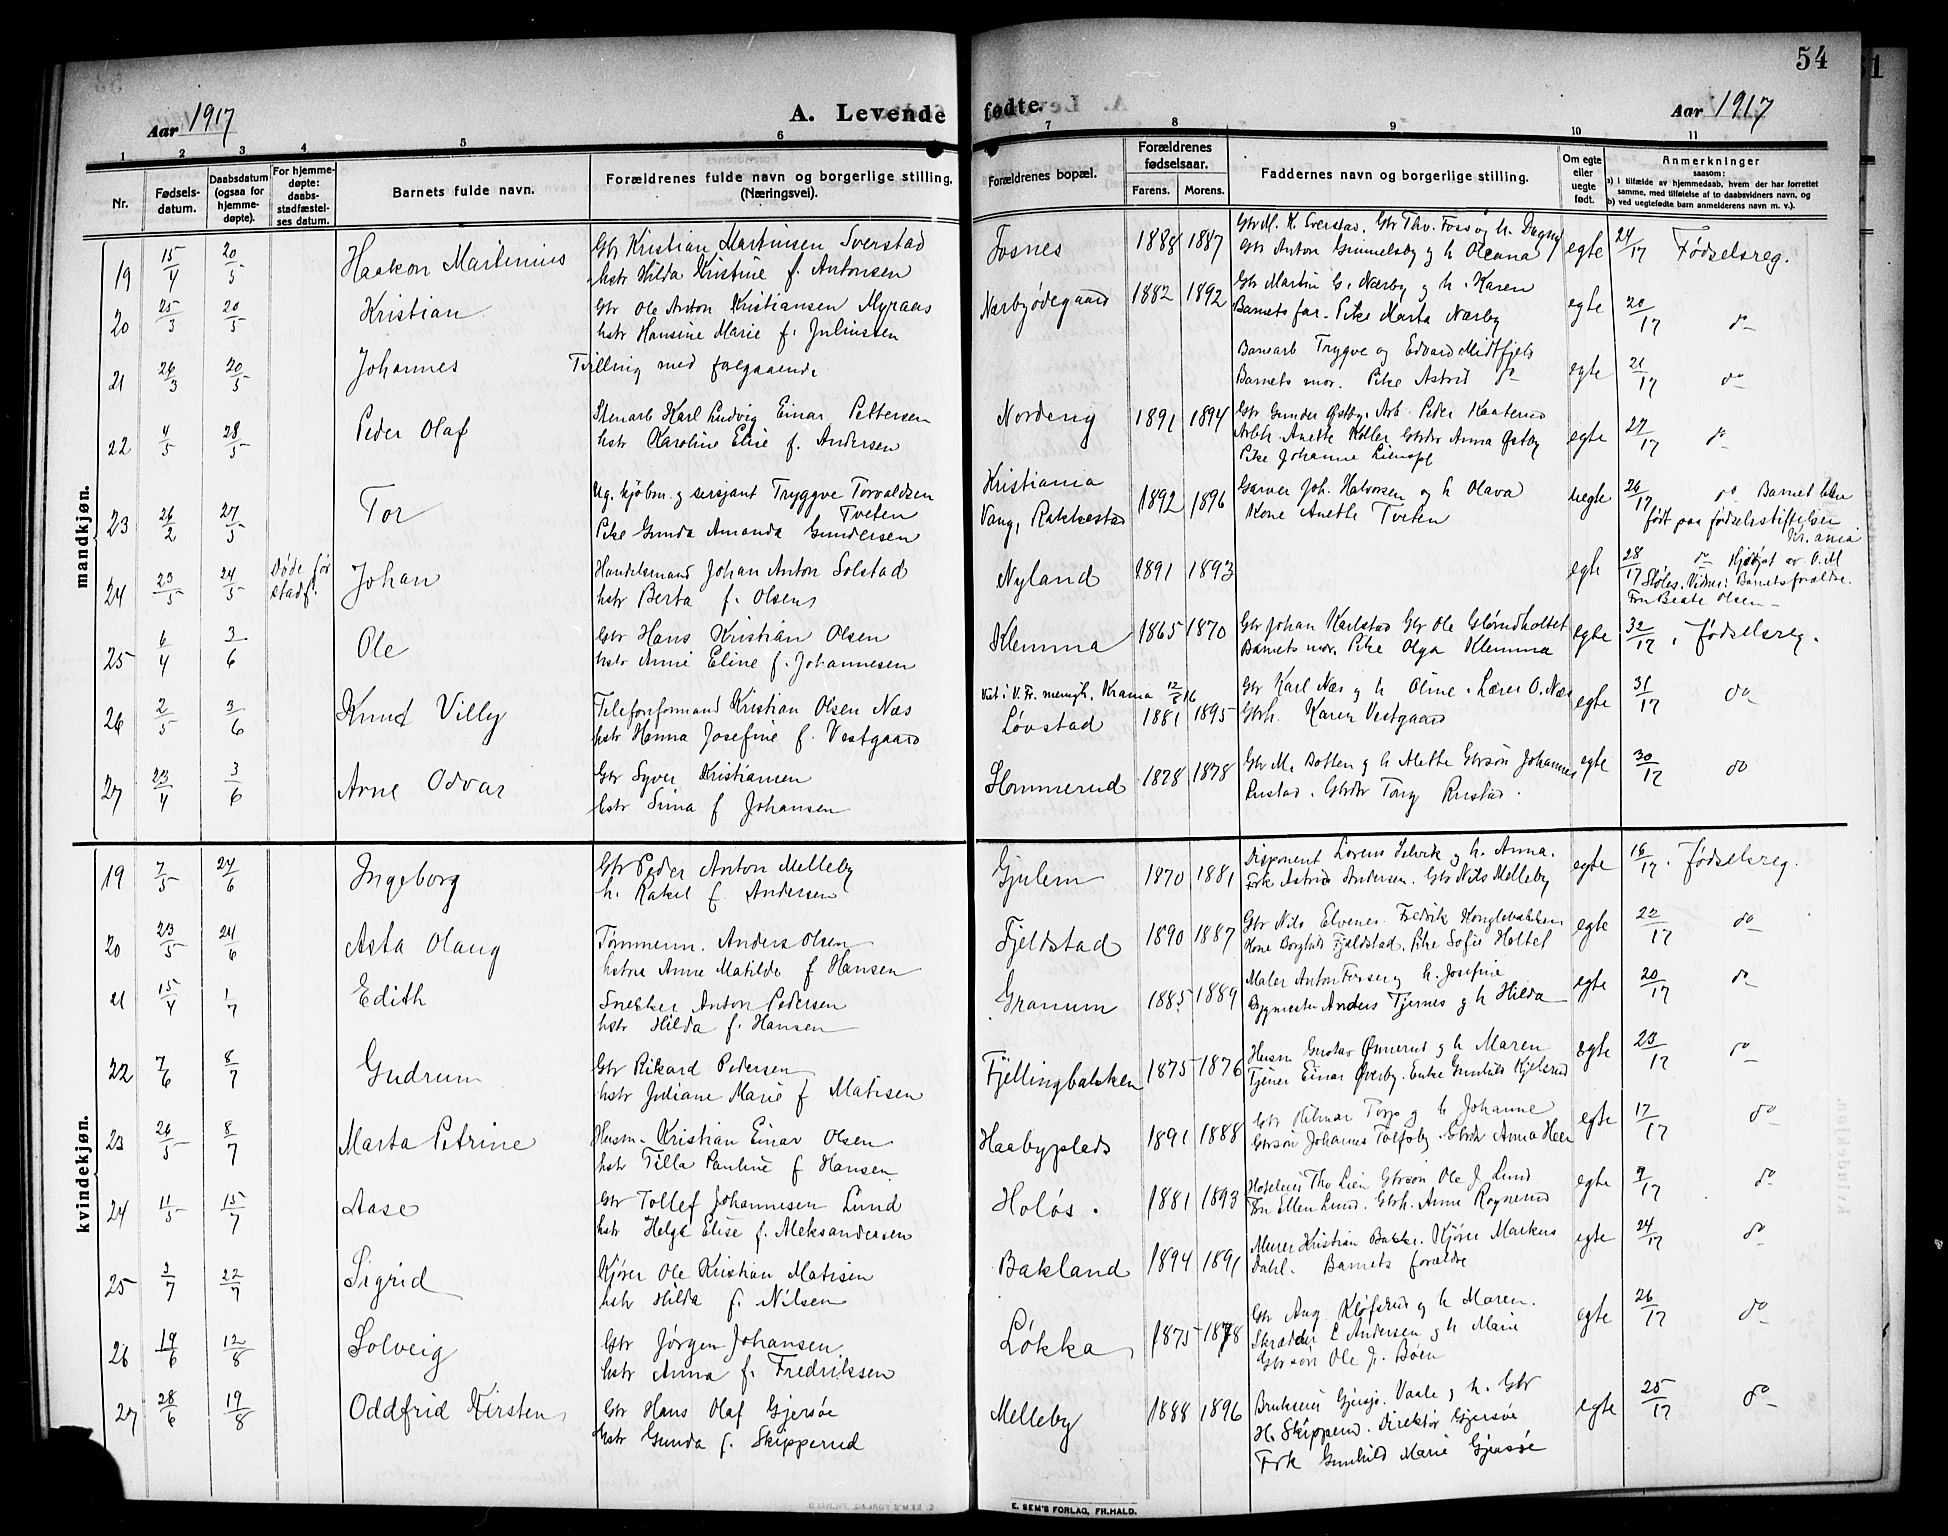 54
Aar 1917
A. Levende fødte.
Aar 1917
1 2 3 4 5 6 7 8 9 10 11
Nr.
Fødsels-
datum.
Daabsdatum
(ogsaa for
hjemme-
døpte).
For hjemme-
døpte:
daabs-
stadfæstel-
ses datum.
Barnets fulde navn.
Forældrenes fulde navn og borgerlige stilling,
(Næringsvei).
Forældrenes bopæl.
Forældrenes
fødselsaar.
Farens. Morens.
Faddernes navn og borgerlige stilling.
Om egte
eller
uegte
født.
Anmerkninger
saasom:
a) i tilfælde av hjemmedaab, hvem der har forrettet
samme, med tilføielse af to daabsvidners navn, og
b) ved uegtefødte barn anmelderens navn m. v.).
mandkjøn.
19 15/4 20/5 Haakon Martinius Gbr Kristian Martinsen Sverstad Fosnes 1888 1887 Gbr M. K. Sverstad. Gbr Thv. Foss og h. Dagny egte 24/17 Fødselsreg.
hstr Hilda Kristine f. Antonsen Gbr Anton Gummelsby og h Oleana
20 25/3 20/5 Kristian Gbr Ole Anton Kristiansen Myraas Nærbyødegaard 1882 1892 Gbr Martin G. Nærby og h. Karen egte 20/17 do
hstr Hansine Marie f. Juliussen Barnets far. Pike Marta Nærby
21 26/3 20/5 Johannes Tvilling med foregaaende Banearb Trygve og Edvard Midtfjeld egte 21/17 do
Barnets mor. Pike Astrid do
22 4/5 28/5 Peder Olaf Stenarb Karl Ludvig Einar Pettersen Nordeng 1891 1894 Gbr Gunder Østby. Arb. Peder Kaaterud egte 27/17 do
hstr Karoline Elise f. Andersen Arbh. Anette Koller Gbrdr Anna Østby
Pike Johanne
23 26/2 27/5 Tor Ug. kjøbm. og sersjant Tryggve Torvaldsen Tveten Kristiania 1892 1896 Garver Joh. Halvorsen og h Olava uegte 26/17 do Barnet blev
Pike Gunda Amanda Gundersen Vang, Rakkestad Kone Anette Tveten født paa fødselsstiftelsen
Kr.ania
24 23/5 24/5 Døde før stadf. Johan Handelsmand Johan Anton Solstad Nyland 1891 1893 egte 28/17 do Hjdøpt av O. M
hstr Berta f. Olsen Støles. Vidner: Barnets forældre.
Fru Beate Olsen
25 6/4 3/6 Ole Gbr Hans Kristian Olsen Klemma 1865 1870 Gbr Johan Karlstad Gbr Ole Glørudholtet egte 32/17 Fødselsreg.
hstr Anne Eline f. Johannesen Barnets mor. Pike Olga Klemma
26 2/5 3/6 Knud Villy Telefonformand Kristian Olsen Næs Viet i V. Fr. menigh. Krania 12/2 16 Gbr Karl Næs og h Oline. Lærer O. Næs egte 31/17 do
hstr Hanna Josefine f. Vestgaard Løvstad 1881 1895 Gbrh. Karen Vestgaard
27 23/4 3/6 Arne Odvar Gbr Syver Kristiansen Slommerud 1878 1878 Gbr M. Botten og h Mette Gbrsøn Johannes egte 30/17 do
hstr Sina f Johansen Rustad. Gbrdr Tony Rustad.
kvindekjøn.
19 7/5 24/6 Ingeborg Gbr Peder Anton Melleby Gjulem 1870 1881 Disponent Lorens Selvik og h. Anna. egte 16/17. Fødselsreg.
h. Rakel f. Andersen Frk Astrid Andersen. Gbr Nils Melleby
20 23/5 24/6 Asta Olaug Tømmerm. Anders Olsen Fjeldstad 1890 1887 Gbr Nils Elvenes. Fredrik Konglebakken egte 22/17 do
hstru Anne Matilde f Hansen Kone Borghild Fjeldstad. Pike Sofie Holtet
21 15/4 1/7 Edith Snekker Anton Pedersen Granum 1885 1889 Maler Anton Forsen og h. Josefine egte 20/17 do
hstr Hilda f. Hansen Bygmester Anders Tjernes og h Hilda
22 7/6 8/7 Gudrum Gbr Rikard Pedersen Fjellingbakken 1875 1876 Husm Gustav Ønnerud og h Maren egte 23/17 do
hstr Juliane Marie f Matisen Tjener Einar Øverby. Enke Gunhild Kjelsrud
23 26/5 8/7 Marta Petrine Husm. Kristian Einar Olsen Haabyplads 1891 1888 Gbr Hilmar Torp og h Johanne egte 17/17 do
hstr Tilla Pauline f Hansen Gbrsøn Johannes Tolfsby. Gbrdr Anna Heer
24 11/5 15/7 Aase Gbr Tollef Johannesen Lund Holøs. 1881 1893 Hoteleier Thv Lien Gbrsøn Ole J. Lund egte 9/17 do
hstr Helga Elise f. Aleksandersen Fru Ellen Lund. Gbrh. Anne Rognerud
25 3/7 22/7 Sigrid Kjører Ole Kristian Matisen Bakland 1894 1891 Murer Kristian Bakke. Kjører Markus egte 24/17 do
hstr Hilda f. Nilsen Dahl. Barnets forældre
26 19/6 12/8 Solveig Gbr Jørgen Johansen Løkka 1875 1878 Gbr Aug Kløfsrud og h Maren. egte 26/17 do
hstr Anna f. Fredriksen Skrædder E Andersen og h Marie
Gbrsøn Ole J. Bøen
27 28/6 19/8 Oddfrid Kirsten Gbr Hans Olaf Gjersøe Melleby 1888 1896 Brukseier Gjersøe. Vaale og h. Gbr egte 25/17 do
hstr Gunda f. Skipperud H. Skipperud. Direktør Gjersøe
Frk Gunhild Marie Gjersøe
E. SEM'S FORLAG, FR.HALD.